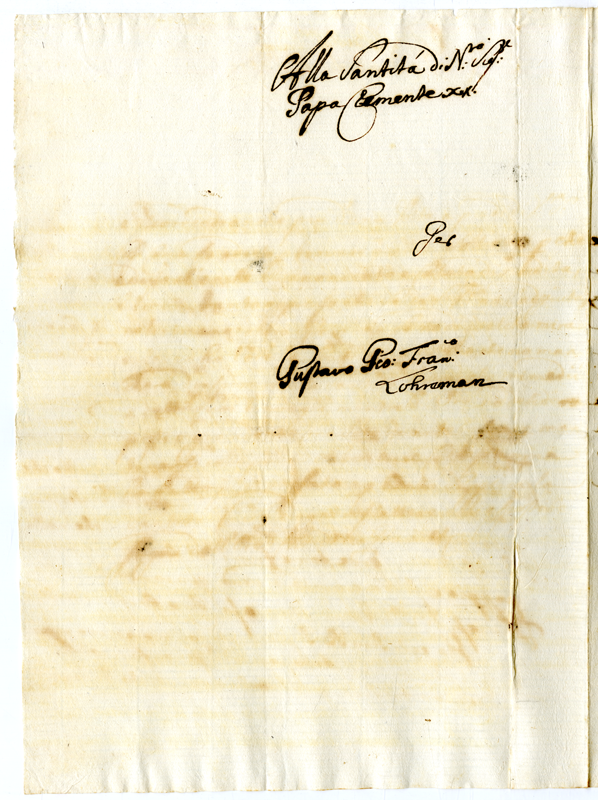 Alla Santità di N.ro Sig.re
Papa Clemente XI.
Per
Gustavo Gio: Fran.co
Lohreman